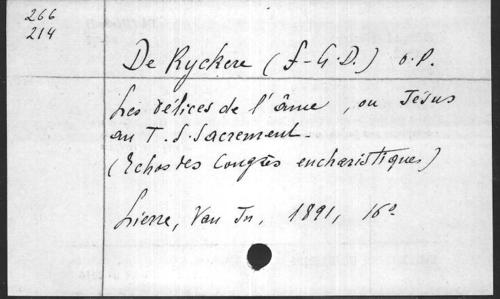 266
214
De Ryckere (F-G.D.) O.P.
Les délices de l'âme, ou Jésus
au T.S. Sacrement.
(Echos des Congrès eucharistiques)
Lierre, Van In, 1891, 16º